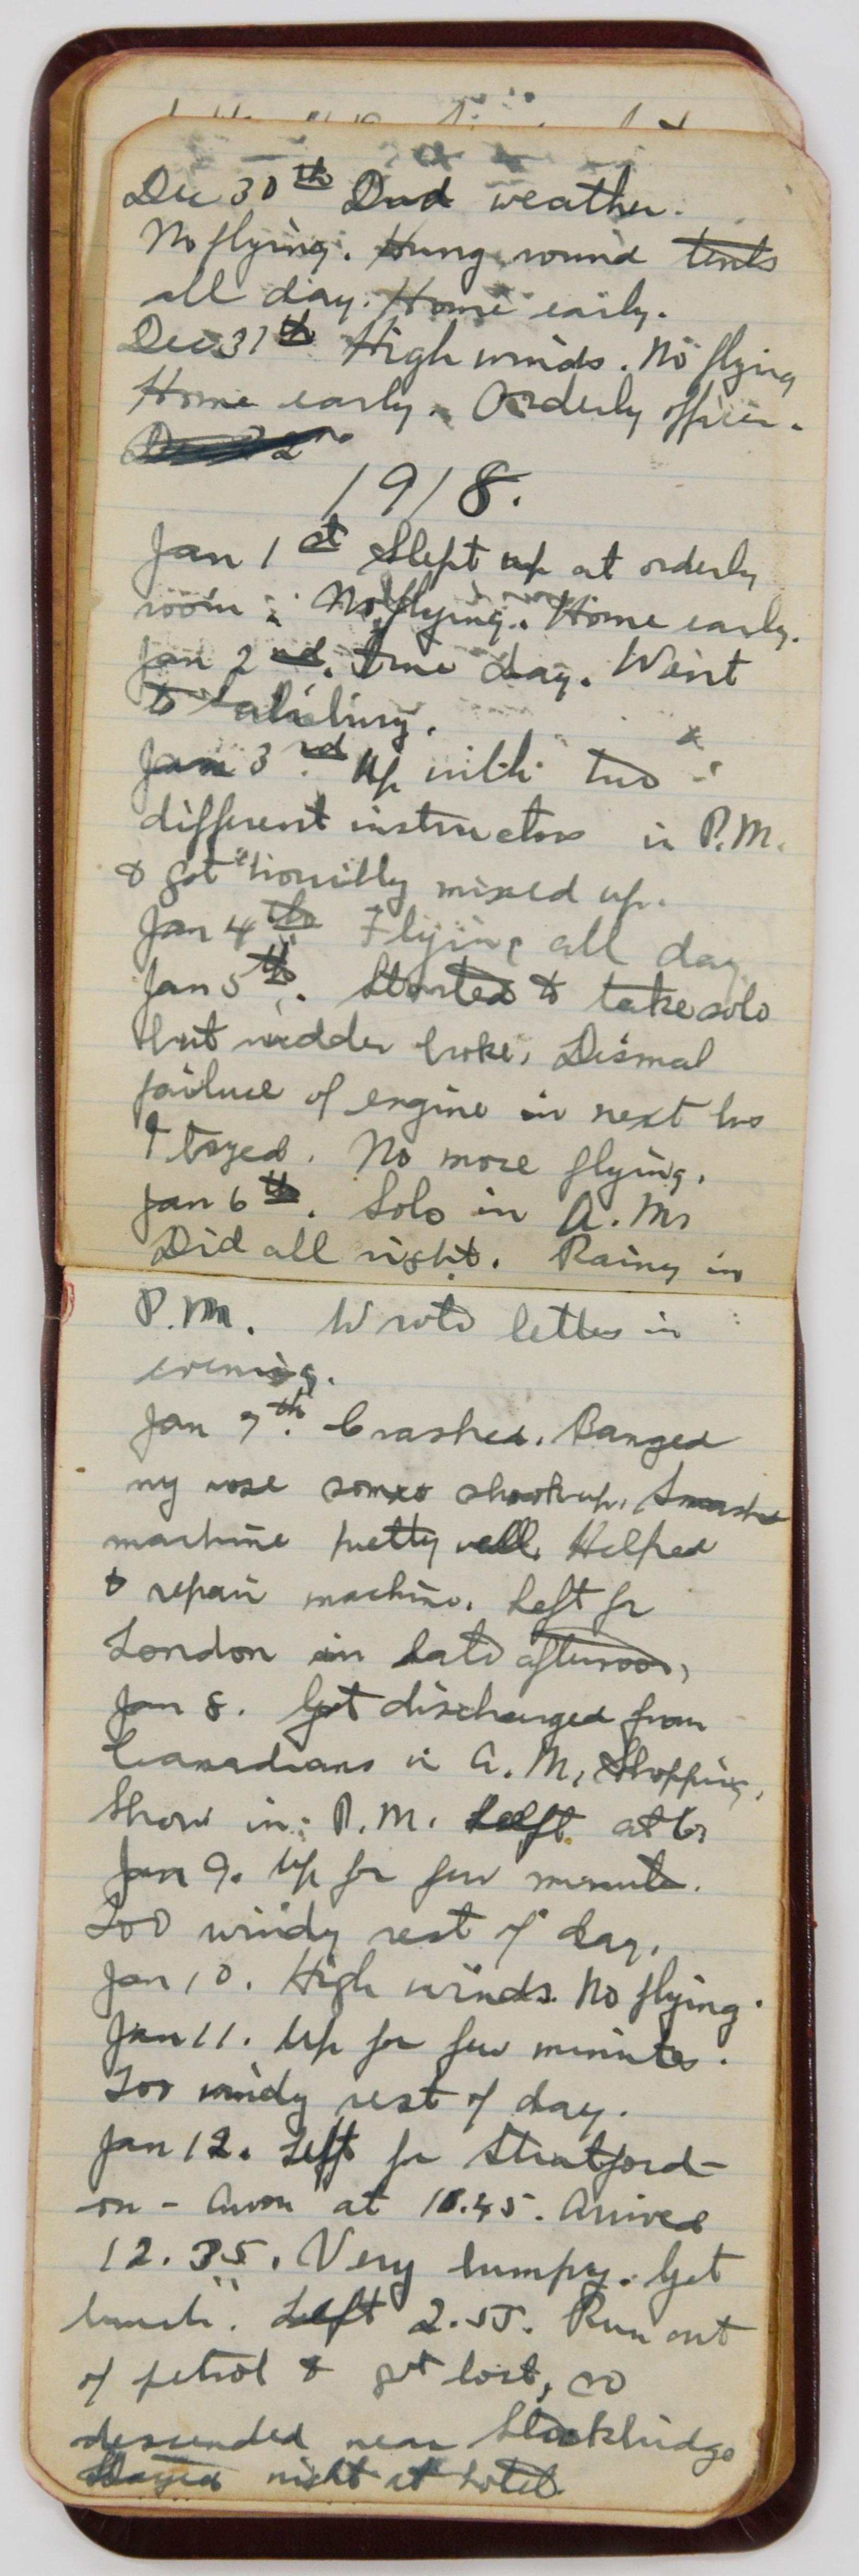 Dec 30th Dud weather.
No flying. Hung round tents
all day. Home early.
Dec 31th High winds. No flying
Home early. Orderly officer.
1918.
Jan 1st Slept up at orderly
room. No flying. Home early.
Jan 2nd. Fine day. Went
to Salisbury.
Jan 3rd Up with two
different instructors in P.M.
& got horribly mixed up.
Jan 4th Flying all day
Jan 5th. Started to take solo
but rudder broke. Dismal
failure of engine in next bus
I tryed. No more flying.
Jan 6th. Solo in A.M.
Did all right. Rainy in
P.M. Wrote letters in
evening.
Jan 7th. Crashed. Banged
my nose some & shook up. Smashed
machine pretty well. Helped
to repair machine. Left for
London in late afternoon,
Jan 8. Got discharged from
Canadians in A.M. Shopping.
Show in P.M. Left at 6.
Jan 9. Up for few minutes.
Too windy rest of day.
Jan 10. High winds. No flying.
Jan 11. Up for few minutes.
Too windy rest of day.
Jan 12. Left for Stratford-
on-Avon at 10.45. Arrived
12.35. Very bumpy. Got
lunch. Left 2.55. Run out
of petrol & got lost, so
descended near Stockbridge
Stayed night at hotel.